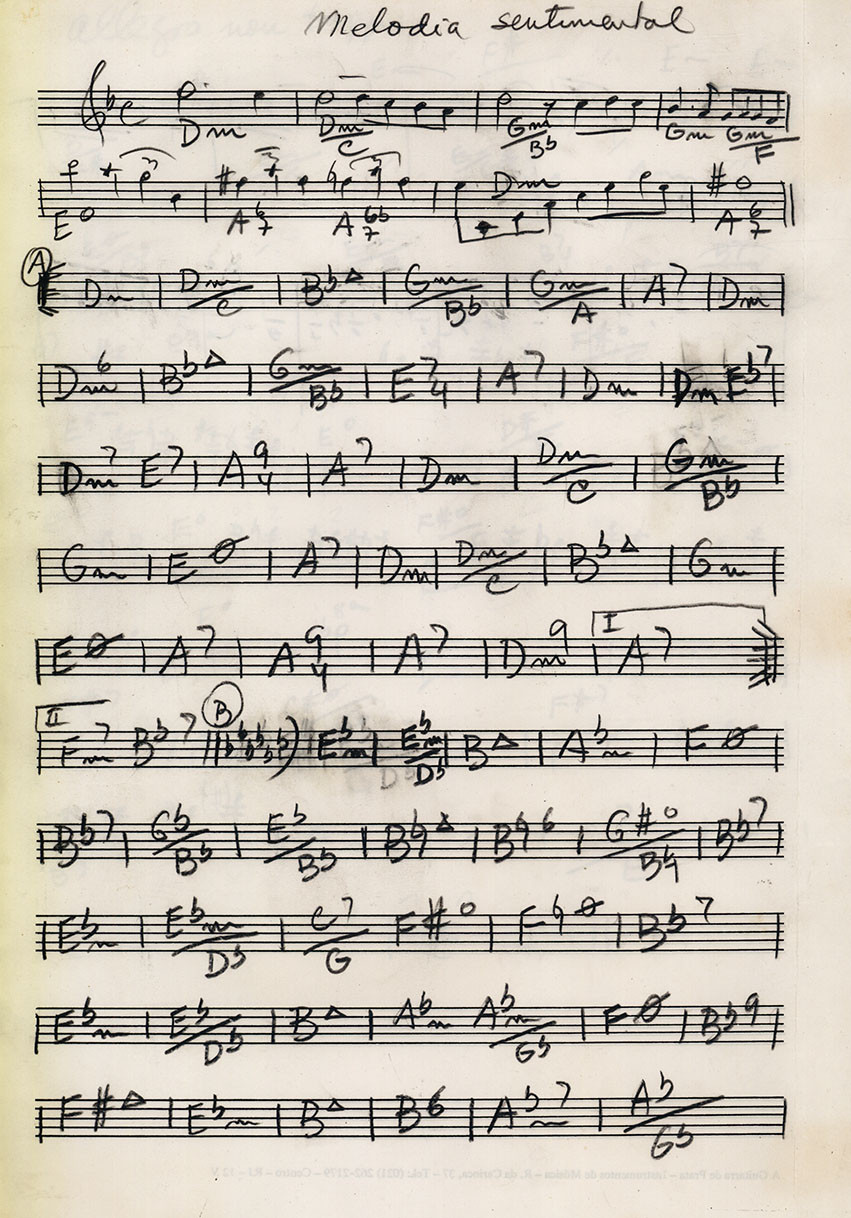 Melodia sentimental
Dm Dm/C Gm/Bb Gm Gm/F
Eº A 6/7 A 6b/7 Dm A 6/7
A
Dm | Dm/C | BbΔ | Gm/Bb | Gm/A | A7 | Dm
Dm6 | BbΔ | Gm/Bb | E7/4 | A7 | Dm | Dm Eb7
Dm7 E7 | A9/4 | A7 | Dm | Dm/C | Gm/Bb
Gm | EØ | A7 | Dm | Dm/C | BbΔ | Gm
EØ | A7 | A9/4 | A7 | Dm9 | I A7
II Fm7 Bb7 B Ebm | Ebm/Db | BΔ | Abm | FØ
Bb7 | Gb/Bb | Eb/Bb | B♮Δ | B♮6 | G#º/B♮ | Bb7
Ebm | Ebm/Db | C7/G F#º | F♮Ø | Bb7
Ebm | Eb/Db | BΔ | Abm Abm/Gb | FØ | Bb9
F#Δ | Ebm | BΔ | B6 | Abm7 | Ab/Gb
A Guitarra de Prata – Instrumentos de Música – R. da Carioca, 37 – Tel.: (021) 262-2179 – Centro – RJ – 12 V